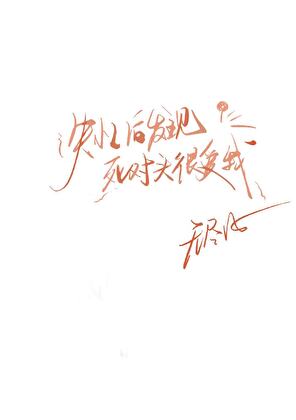 失忆后发现
死对头很爱我